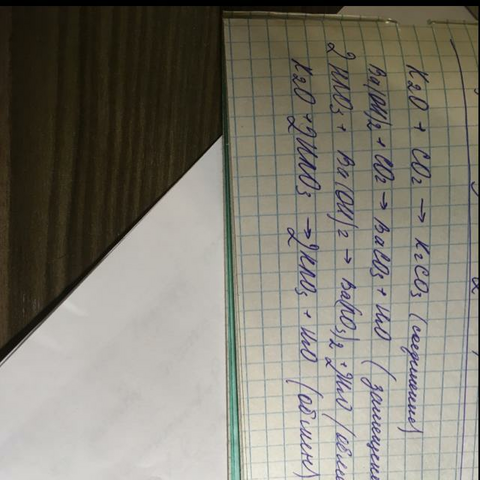 K₂O + CO₂ → K₂CO₃ (соединение)
Ba(OH)₂ + CO₂ → BaCO₃ + H₂O (замещени
2HNO₃ + Ba(OH)₂ → Ba(NO₃)₂ + 2H₂O (обме
K₂O + 2HNO₃ → 2KNO₃ + H₂O (обмен)